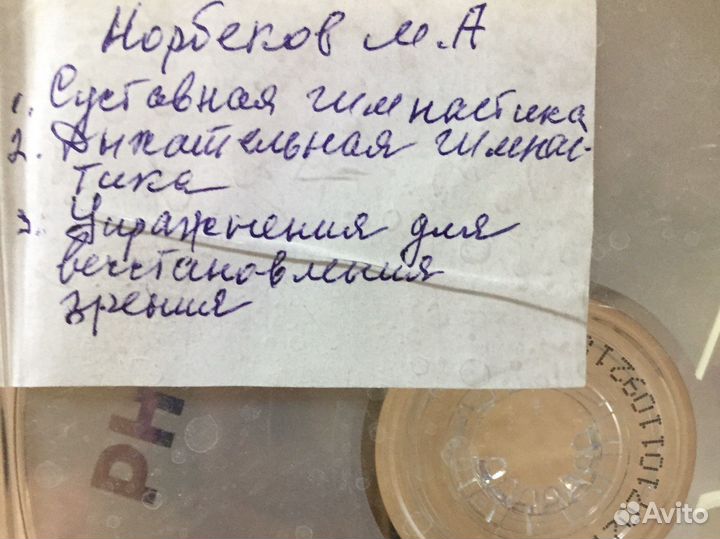 Норбеков М.А
1. Суставная гимнастика
2. Дыхательная гимнас-
тика
3. Упражнения для
восстановления
зрения
PH
Avito